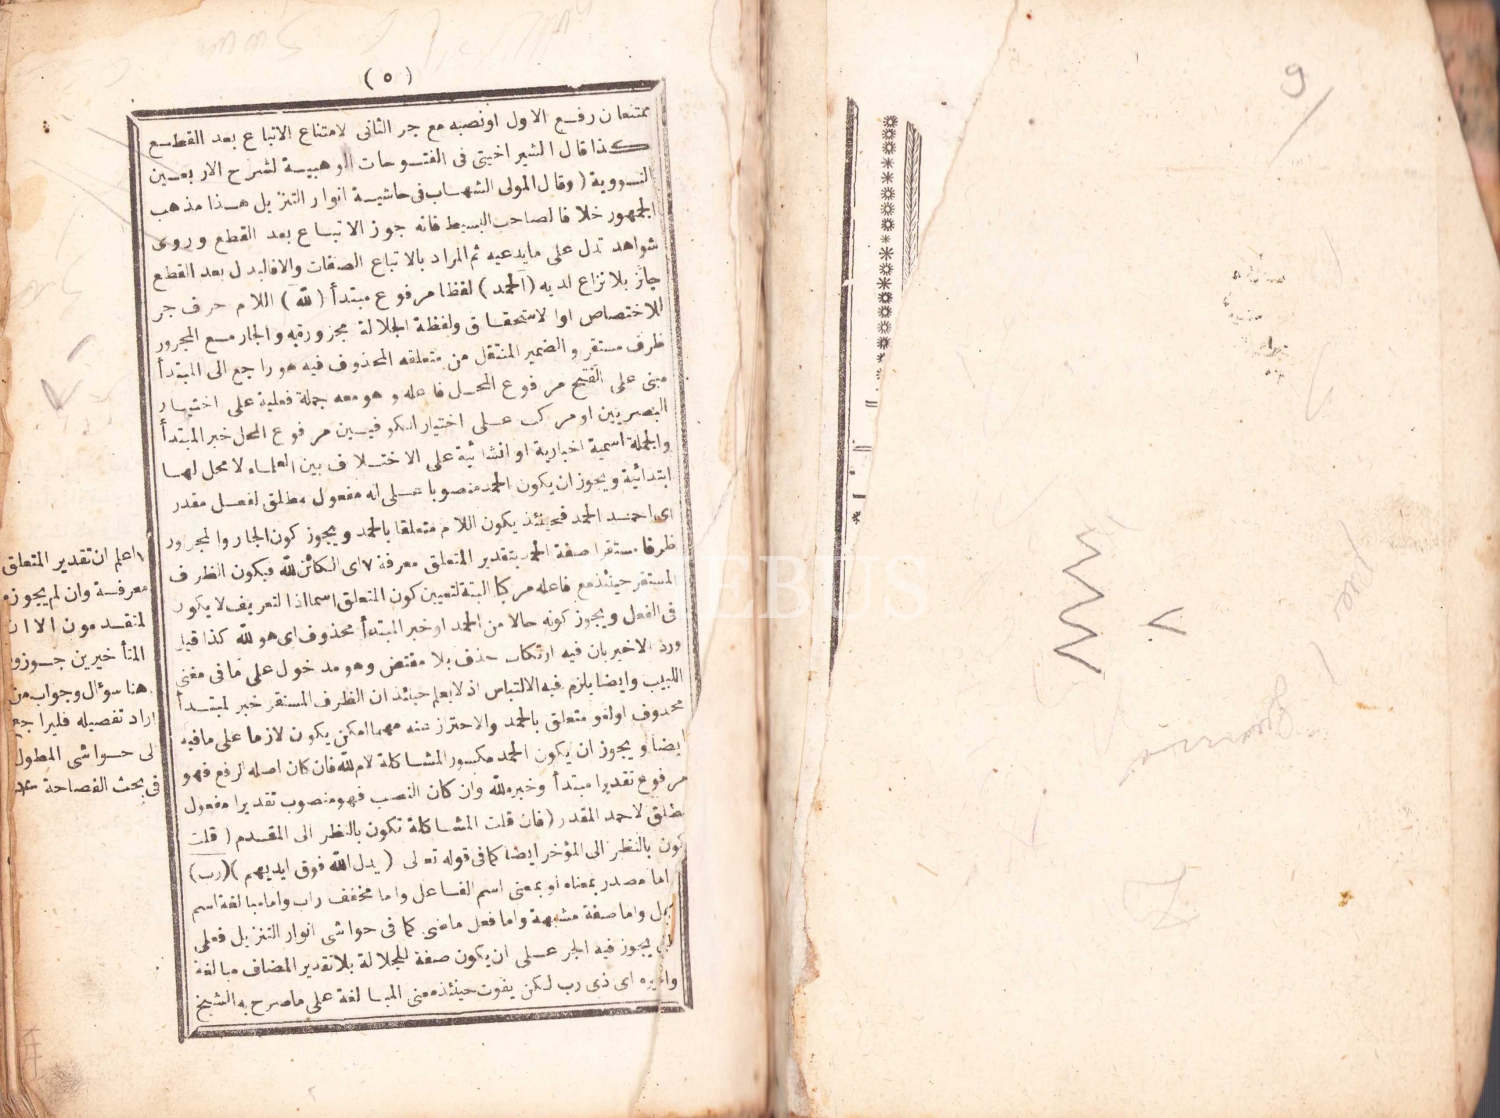 (٥)
يمتنعان رفع الاول اونصبه مع جر الثانى لامتناع الاتباع بعد القطع
كذا قال الشبراخيتى فى الفتوحات الوهبية لشرح الاربعين
النووية (وقال المولى الشهاب فى حاشية انوار التنزيل هذا مذهب
الجمهور خلافا لصاحب البسيط فانه جوز الاتباع بعد القطع وروى
شواهد تدل على مايدعيه ثم المراد بالاتباع الصفات والافالبدل بعد القطع
جائز بلا نزاع لديه (الحمد) لفظا مرفوع مبتدأ (لله) اللام حرف جر
للاختصاص اوالاستحقاق ولفظة الجلالة مجرورة به والجار مع المجرور
ظرف مستقر والضمير المنتقل من متعلقه المحذوف فيه هو راجع الى المبتدأ
مبنى على الفتح مرفوع المحل فاعله وهو معه جملة فعلية على اختيار
البصريين اومركب على اختيار الكوفيين مرفوع المحل خبر المبتدأ
والجملة اسمية اخبارية او انشائية على الاختلاف بين العلماء لا محل لها
ابتدائية ويجوز ان يكون الحمد منصوبا على انه مفعول مطلق لفعل مقدر
اى احمد الحمد فحينئذ يكون اللام متعلقا بالحمد ويجوز كون الجار والمجرور
ظرفا مستقرا صفة الحمد بتقدير المتعلق معرفة ٧ اى الكائن لله فيكون الظرف
المستقر حينئذ مع فاعله مركبا البتة لتعيين كون المتعلق اسما اذا لتعريف لايكون
فى الفعل ويجوز كونه حالا من الحمد اوخبر المبتدأ محذوف اى هو لله كذا قيل
ورد الاخير بان فيه ارتكاب حذف بلا مقتض وهو مدخول على ما فى مغنى
اللبيب وايضا يلزم فيه الالتباس اذ لايعلم حينئذ ان الظرف المستقر خبر لمبتدأ
محذوف اولغو متعلق بالحمد والاحتراز عنه مهما امكن يكون لازما على مافيه
ايضا ويجوز ان يكون الحمد مكسور المشاكلة لام لله فان كان اصله الرفع فهو
مرفوع تقديرا مبتدأ وخبره لله وان كان النصب فهو منصوب تقديرا مفعول
مطلق لاحمد المقدر (فان قلت المشاكلة تكون بالنظر الى المقدم (قلت
كون بالنظر الى المؤخر ايضا كما فى قوله تعالى (يد الله فوق ايديهم) (رب)
اما مصدر بمعناه او بمعنى اسم الفاعل واما مخفف راب واما مبالغة اسم
واما صفة مشبهة واما فعل ماضى كما فى حواشى انوار التنزيل فعلى
يجوز فيه الجر على ان يكون صفة للجلالة بلا تقدير المضاف مبالغة
اى ذى رب لكن يفوت حينئذ معنى المبالغة على ما صرح به الشيخ
اعلم ان تقدير المتعلق
معرفة وان لم يجوزه
لمتقدمون الا ان
المتأخيرين جوزو
هنا سؤال وجواب من
اراد تفصيله فليراجع
لى حواشى المطول
فى بحث الفصاحة